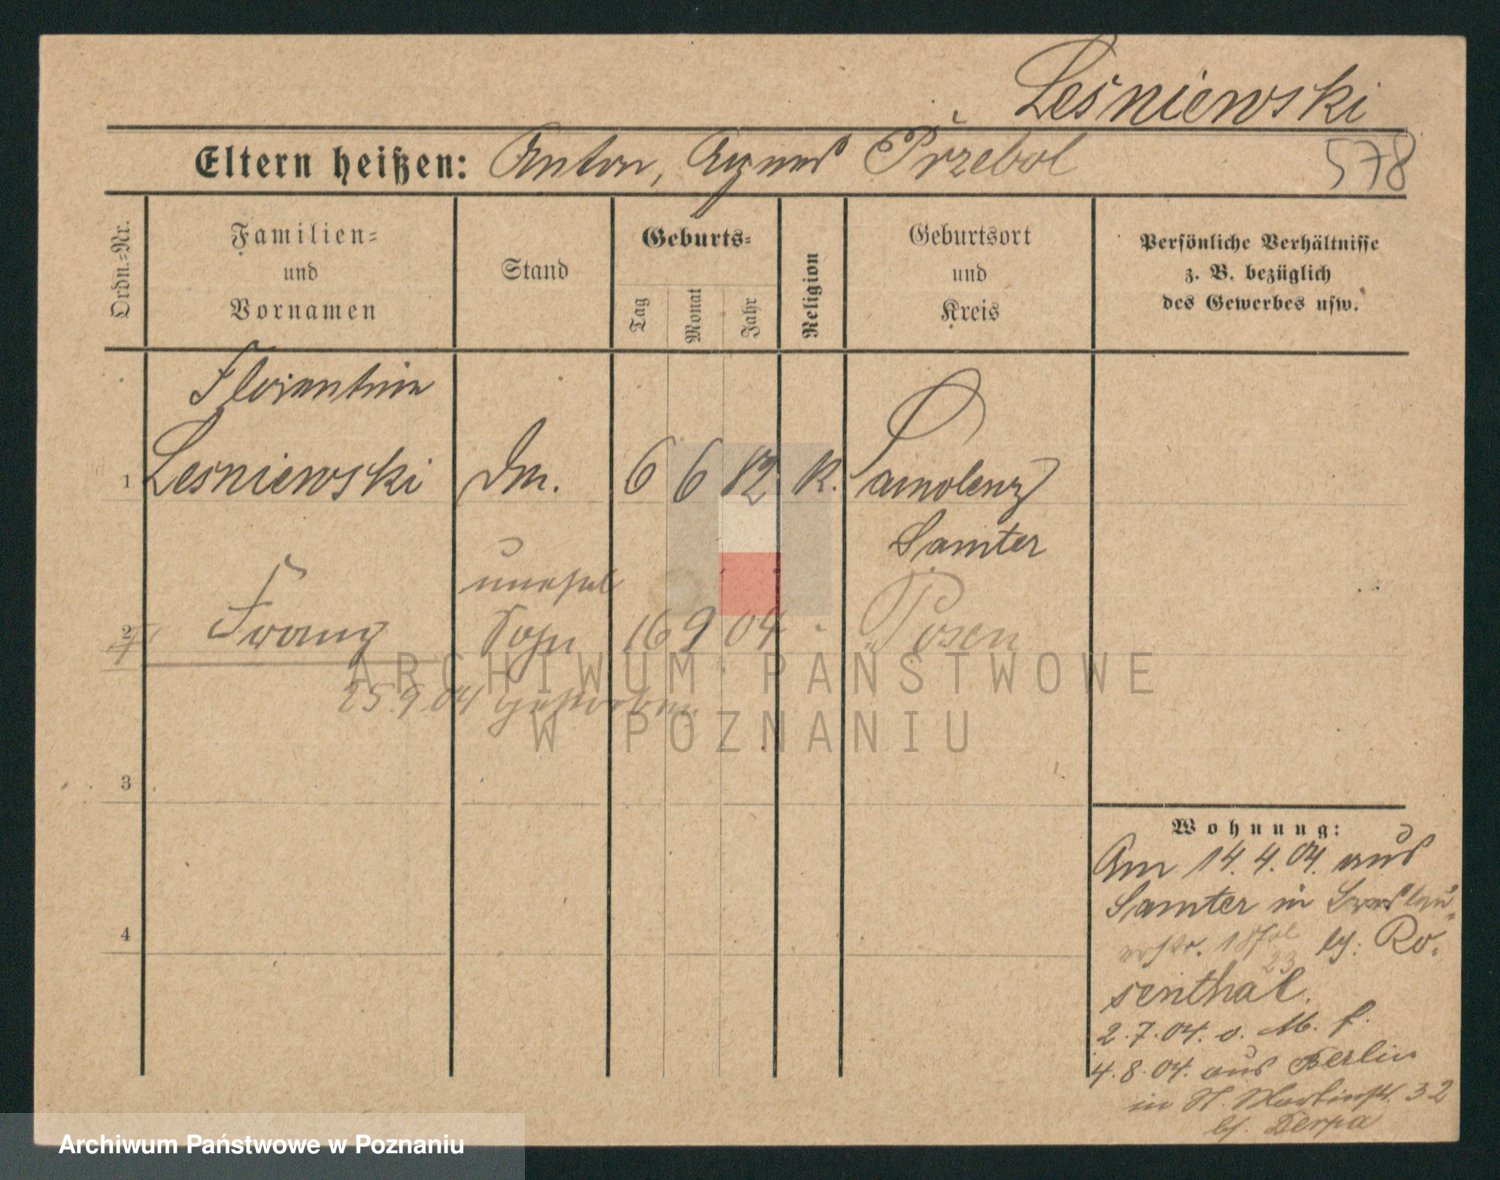 Leśniewski
Eltern heißen: Anton, Agnes Przebol
578
Ordn.-Nr.
Familien-
und
Vornamen
Stand
Geburts-
Tag
Monat
Jahr
Religion
Geburtsort
und
Kreis
Persönliche Verhältnisse
z. B. bezüglich
des Gewerbes usw.
Florentine
1 Lesniewski Dm. 6 6 82 K. Samolenz
Samter
unehel
2 Franz Sohn 16 9 04 " Posen
25 9 04 gestorben
3
4
Wohnung:
Am 14.4.04. aus
Samter in
bei: Ro-
senthal.
2.7.04. o. M. f.
4.8.04. aus Berlin
in St. Martinstr. 32
bei
ARCHIWUM PAŃSTWOWE
W POZNANIU
Archiwum Państwowe w Poznaniu